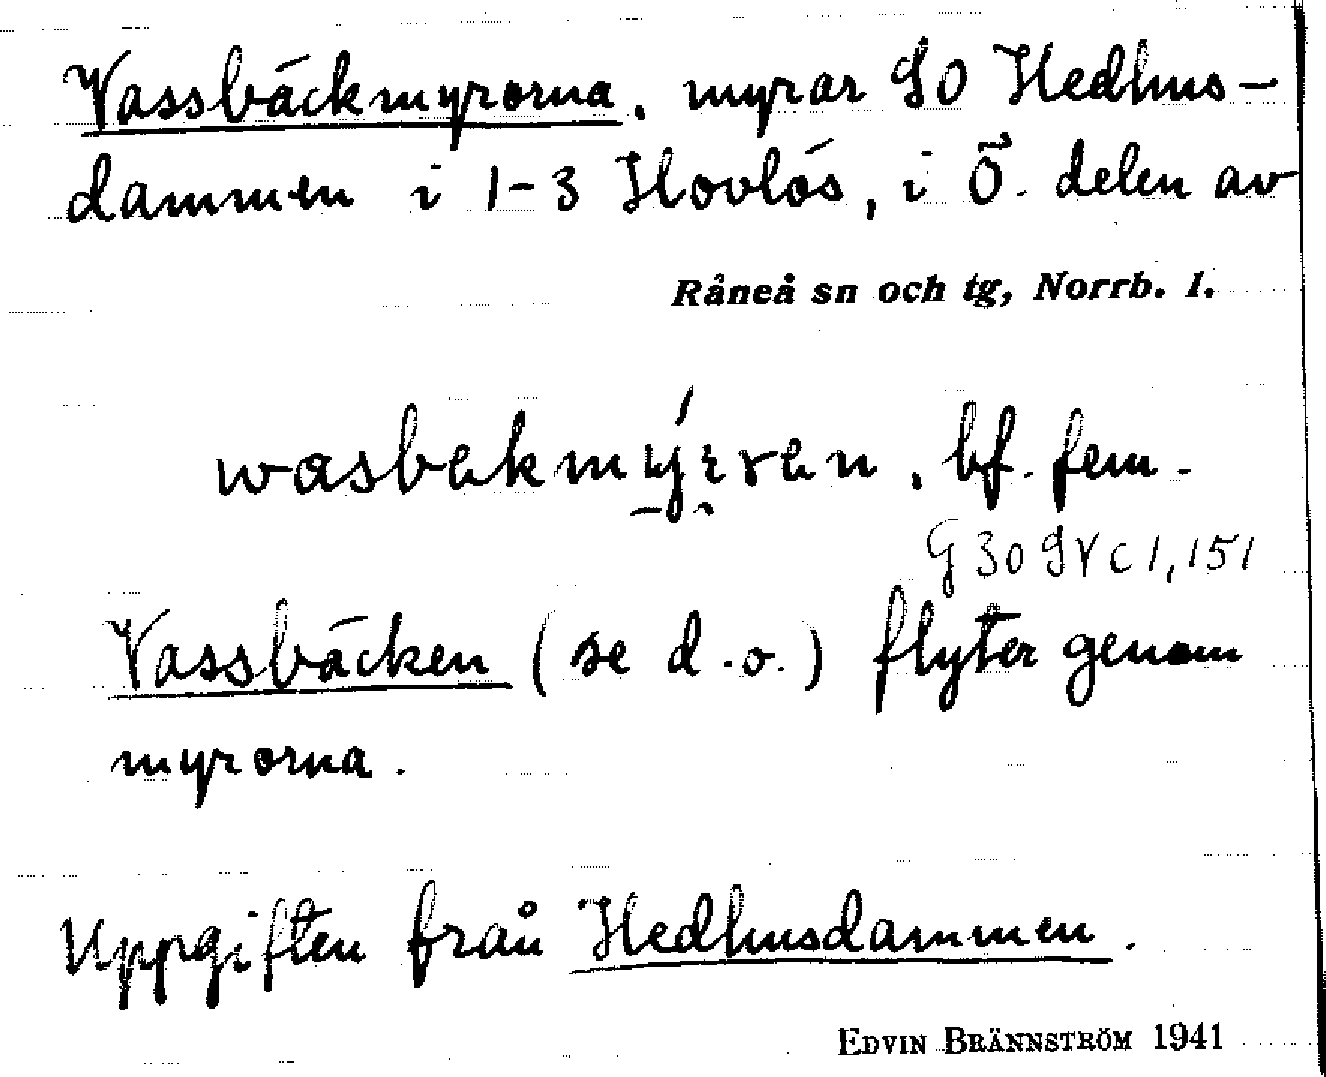 Vassbäckmyrorna, myrar SO Hedhus-
dammen i 1-3 Hovlös, i Ö. delen av
Råneå sn och tg, Norrb. l.
wasbekmýrren, bf. fem.
G 30 SV c 1, 151
Vassbäcken (se d.o.) flyter genom
myrorna.
Uppgiften från Hedhusdammen.
EDVIN BRÄNNSTRÖM 1941